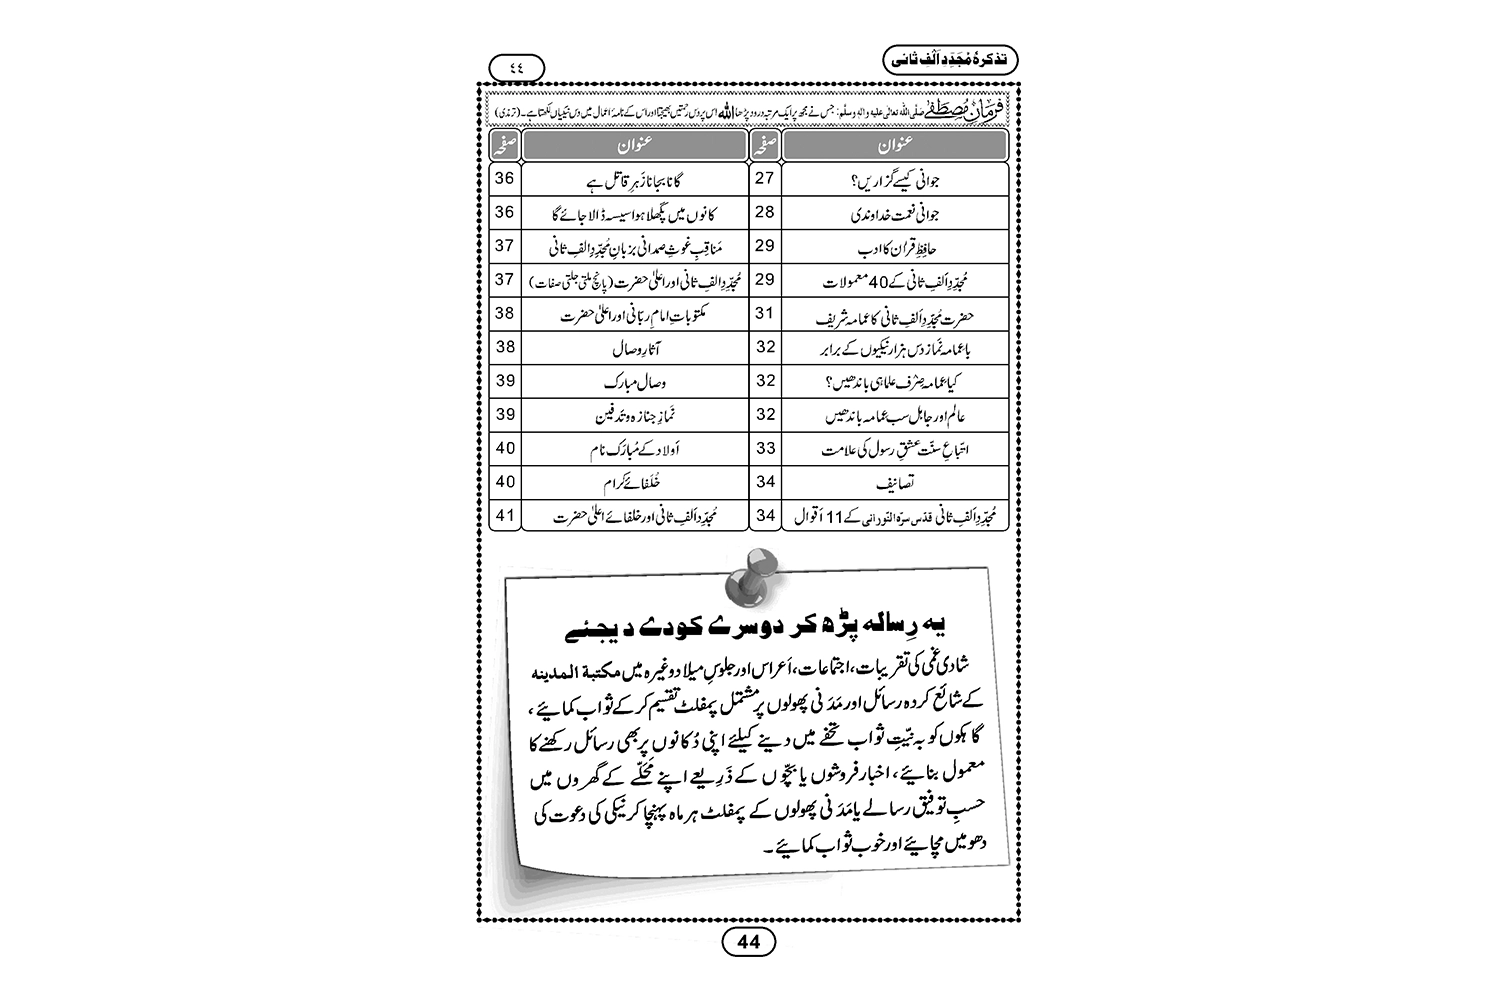 تذکرۂ مُجَدِّدِ اَلفِ ثانی
٤٤
فرمانِ مُصطَفٰے صلَّی اللہ تعالٰی علیہ واٰلہٖ وسلَّم: جس نے مجھ پر ایک مرتبہ درود پڑھا اللہ اس پر دس رحمتیں بھیجتا اور اس کے نامۂ اعمال میں دس نیکیاں لکھتا ہے۔ (ترمذی)
عنوان صفحہ عنوان صفحہ
جوانی کیسے گزاریں؟ 27 گانا بجانا زَہرِ قاتل ہے 36
جوانی نعمت خداوندی 28 کانوں میں پگھلا ہوا سیسہ ڈالا جائے گا 36
حافِظِ قراٰن کا ادب 29 مَناقبِ غوثِ صمدانی بزبانِ مُجدِّدِ الفِ ثانی 37
مُجدِّدِ اَلفِ ثانی کے 40 معمولات 29 مُجدِّدِ الفِ ثانی اور اعلیٰ حضرت (پانچ ملتی جلتی صفات) 37
حضرت مُجدِّدِ اَلفِ ثانی کا عمامہ شریف 31 مکتوباتِ امامِ ربّانی اور اعلیٰ حضرت 38
با عمامہ نَماز دس ہزار نیکیوں کے برابر 32 آثارِ وصال 38
کیا عمامہ صِرْف علما ہی باندھیں؟ 32 وصالِ مبارک 39
عالم اور جاہل سب عمامہ باندھیں 32 نَمازِ جنازہ و تَدفین 39
اتباعِ سنّت عشقِ رسول کی علامت 33 اَولاد کے مُبارَک نام 40
تصانیف 34 خُلَفائے کرام 40
مُجدِّدِ اَلفِ ثانی قدّس سرّہ النّورانی کے 11 اَقوال 34 مُجدِّدِ اَلفِ ثانی اور خلفائے اعلیٰ حضرت 41
یہ رِسالہ پڑھ کر دوسرے کو دے دیجئے
شادی غمی کی تقریبات، اجتماعات، اَعراس اور جلوسِ میلاد وغیرہ میں مکتبۃ المدینہ
کے شائع کردہ رسائل اور مَدَنی پھولوں پر مشتمل پمفلٹ تقسیم کر کے ثواب کمائیے،
گاہکوں کو بہ نیّتِ ثواب تحفے میں دینے کیلئے اپنی دُکانوں پر بھی رسائل رکھنے کا
معمول بنائیے، اخبار فروشوں یا بچّوں کے ذَرِیعے اپنے مَحَلّے کے گھروں میں
حسبِ توفیق رسالے یا مَدَنی پھولوں کے پمفلٹ ہر ماہ پہنچا کر نیکی کی دعوت کی
دھومیں مچائیے اور خوب ثواب کمائیے۔
44